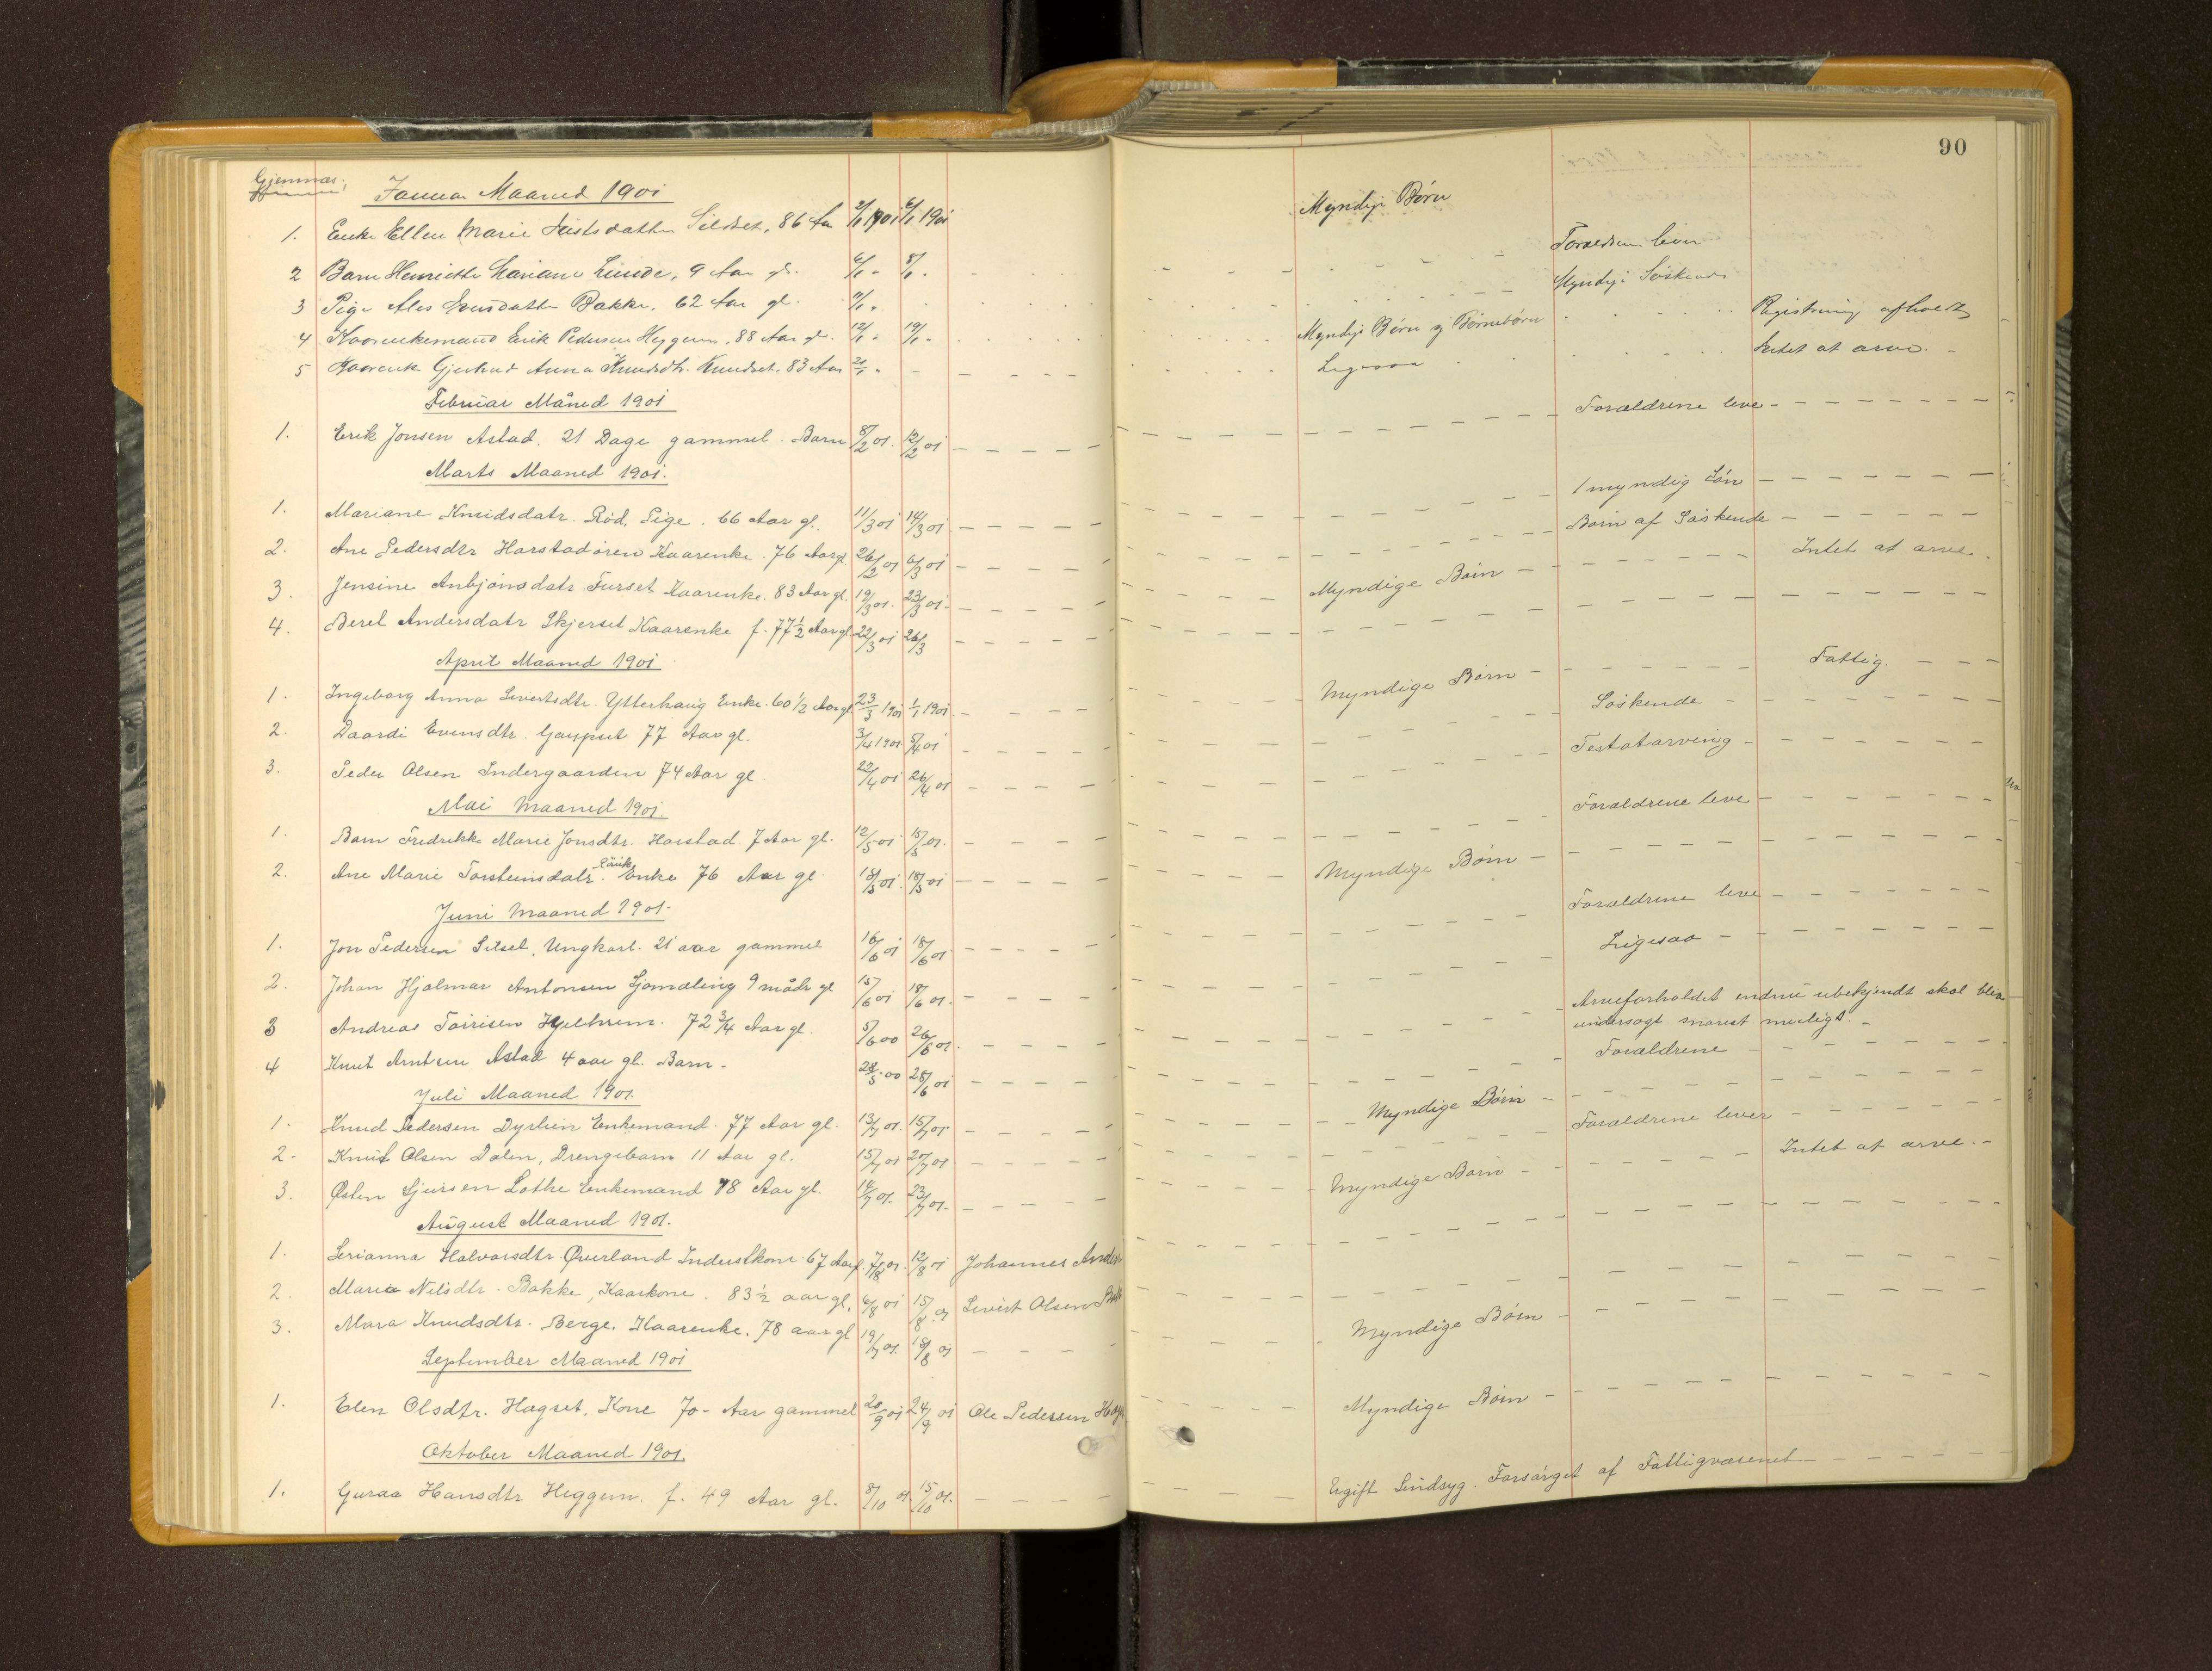 90
Gjemnæs:
Januar Maaned 1901
1. Enke Ellen Marie Silset, 86 Aar 2/1 1901 6/1 1901 Myndige Børn
2 Barn Henriette Mariane Lunde, 9 Aar gl. 6/1 - 8/1 - Forældrene lever
3 Pige Ales Bakke, 62 Aar gl. Myndige Søskende
4 Kaarenkemand Erik Pedersen Heggem, 88 Aar gl. 12/1 - 19/1 - Myndige Børn og Børnebørn Registrering afholdt
5 Kaarenke Gjertrud Anna Knudsdtr. Knudset. 83 Aar 21/1 - Ligesaa Intet at arve. -
Februar Måned 1901
1. Erik Jonsen Astad. 21 Dage gammel. Barn 8/2 01. 12/2 01 Forældrene leve
Marts Maaned 1901.
1. Mariane Knudsdatr. Rød, Pige. 66 Aar gl. 11/3 01 14/3 01 1 myndig Søn
2. Ane Pedersdtr Harstadøren Kaarenke. 76 Aar gl. 26/2 01 6/3 01 Børn af Søskende
3. Jensine Anbjønsdatr Furset Kaarenke. 83 Aar gl. 19/3 01. 23/3 01. Myndige Børn Intet at arve.
4. Berel Andersdatr Skjerset Kaarenke f. 77 1/2 Aar gl 22/3 01 26/3
April Maaned 1901
1. Ingeborg Anna Sivertsdtr. Ytterhaug Enke. 60 1/2 Aar gl 23/3 1901 1/1 1901 Myndige Børn Fattig.
2. Daardi Evensdtr. Gaupset 77 Aar gl. 3/4 1901 8/4 01 Søskende
3. Peder Olsen Indergaarden 74 Aar gl. 22/4 01 26/4 01 Testatarving
Mai Maaned 1901.
1. Barn Fredrikke Marie Jonsdtr. Harstad 7 Aar gl. 12/5 01 15/5 01. Forældrene leve
2. Ane Marie Torsteinsdatr. Enke 76 Aar gl 18/5 01 Myndige Børn
Juni Maaned 1901.
1. Jon Pedersen Silset, Ungkarl. 21 aar gammel 16/6 01 18/6 01 Forældrene leve
2. Johan Hjalmar Antonsen Sjømæling 9 mådr gl 15/6 01 18/6 01. Ligesaa
3 Andreas 72 3/4 Aar gl. 5/6 00 26/6 01. Arveforholdet endnu ubekjendt skal blive
undersøgt snarest muligt. -
4 Knut Arntsen Astad 4 aar gl. Barn. 28/5 00 28/6 01 Forældrene
Juli Maaned 1901.
1. Knud Pedersen Dyrlien Enkemand. 77 Aar gl. 13/7 01. 15/7 01 Myndige Børn
2- Knut Olsen Dalen, Drengebarn 11 Aar gl. 15/7 01 20/7 01 Forældrene lever
3. Østen Sjursen Lothe Enkemand 78 Aar gl. 14/7 01. 23/7 01. Myndige Børn Intet at arve. -
August Maaned 1901.
1. Serianna Halvorsdtr. Øverland Inderstkone 67 Aar gl. 7/8 01. 12/8 01 Johannes
2. Maria Nilsdtr. Bakke, Kaarkone. 83 1/2 aar gl. 6/8 01 15/8 01 Sivert Olsen
3. Mara Knudsdtr. Berge. Kaarenke. 78 aar gl 19/7 01. 18/8 01 Myndige Børn
September Maaned 1901
1. Elen Olsdtr. Hagset, Kone 70- Aar gammel 20/9 01 24/9 01 Ole Pedersen Myndige Børn
Oktober Maaned 1901.
1. Guraa Hansdtr Heggem. f. 49 Aar gl. 8/10 01. 15/10 01. Ugift Sindsyg. Forsørget af Fattigvæsenet